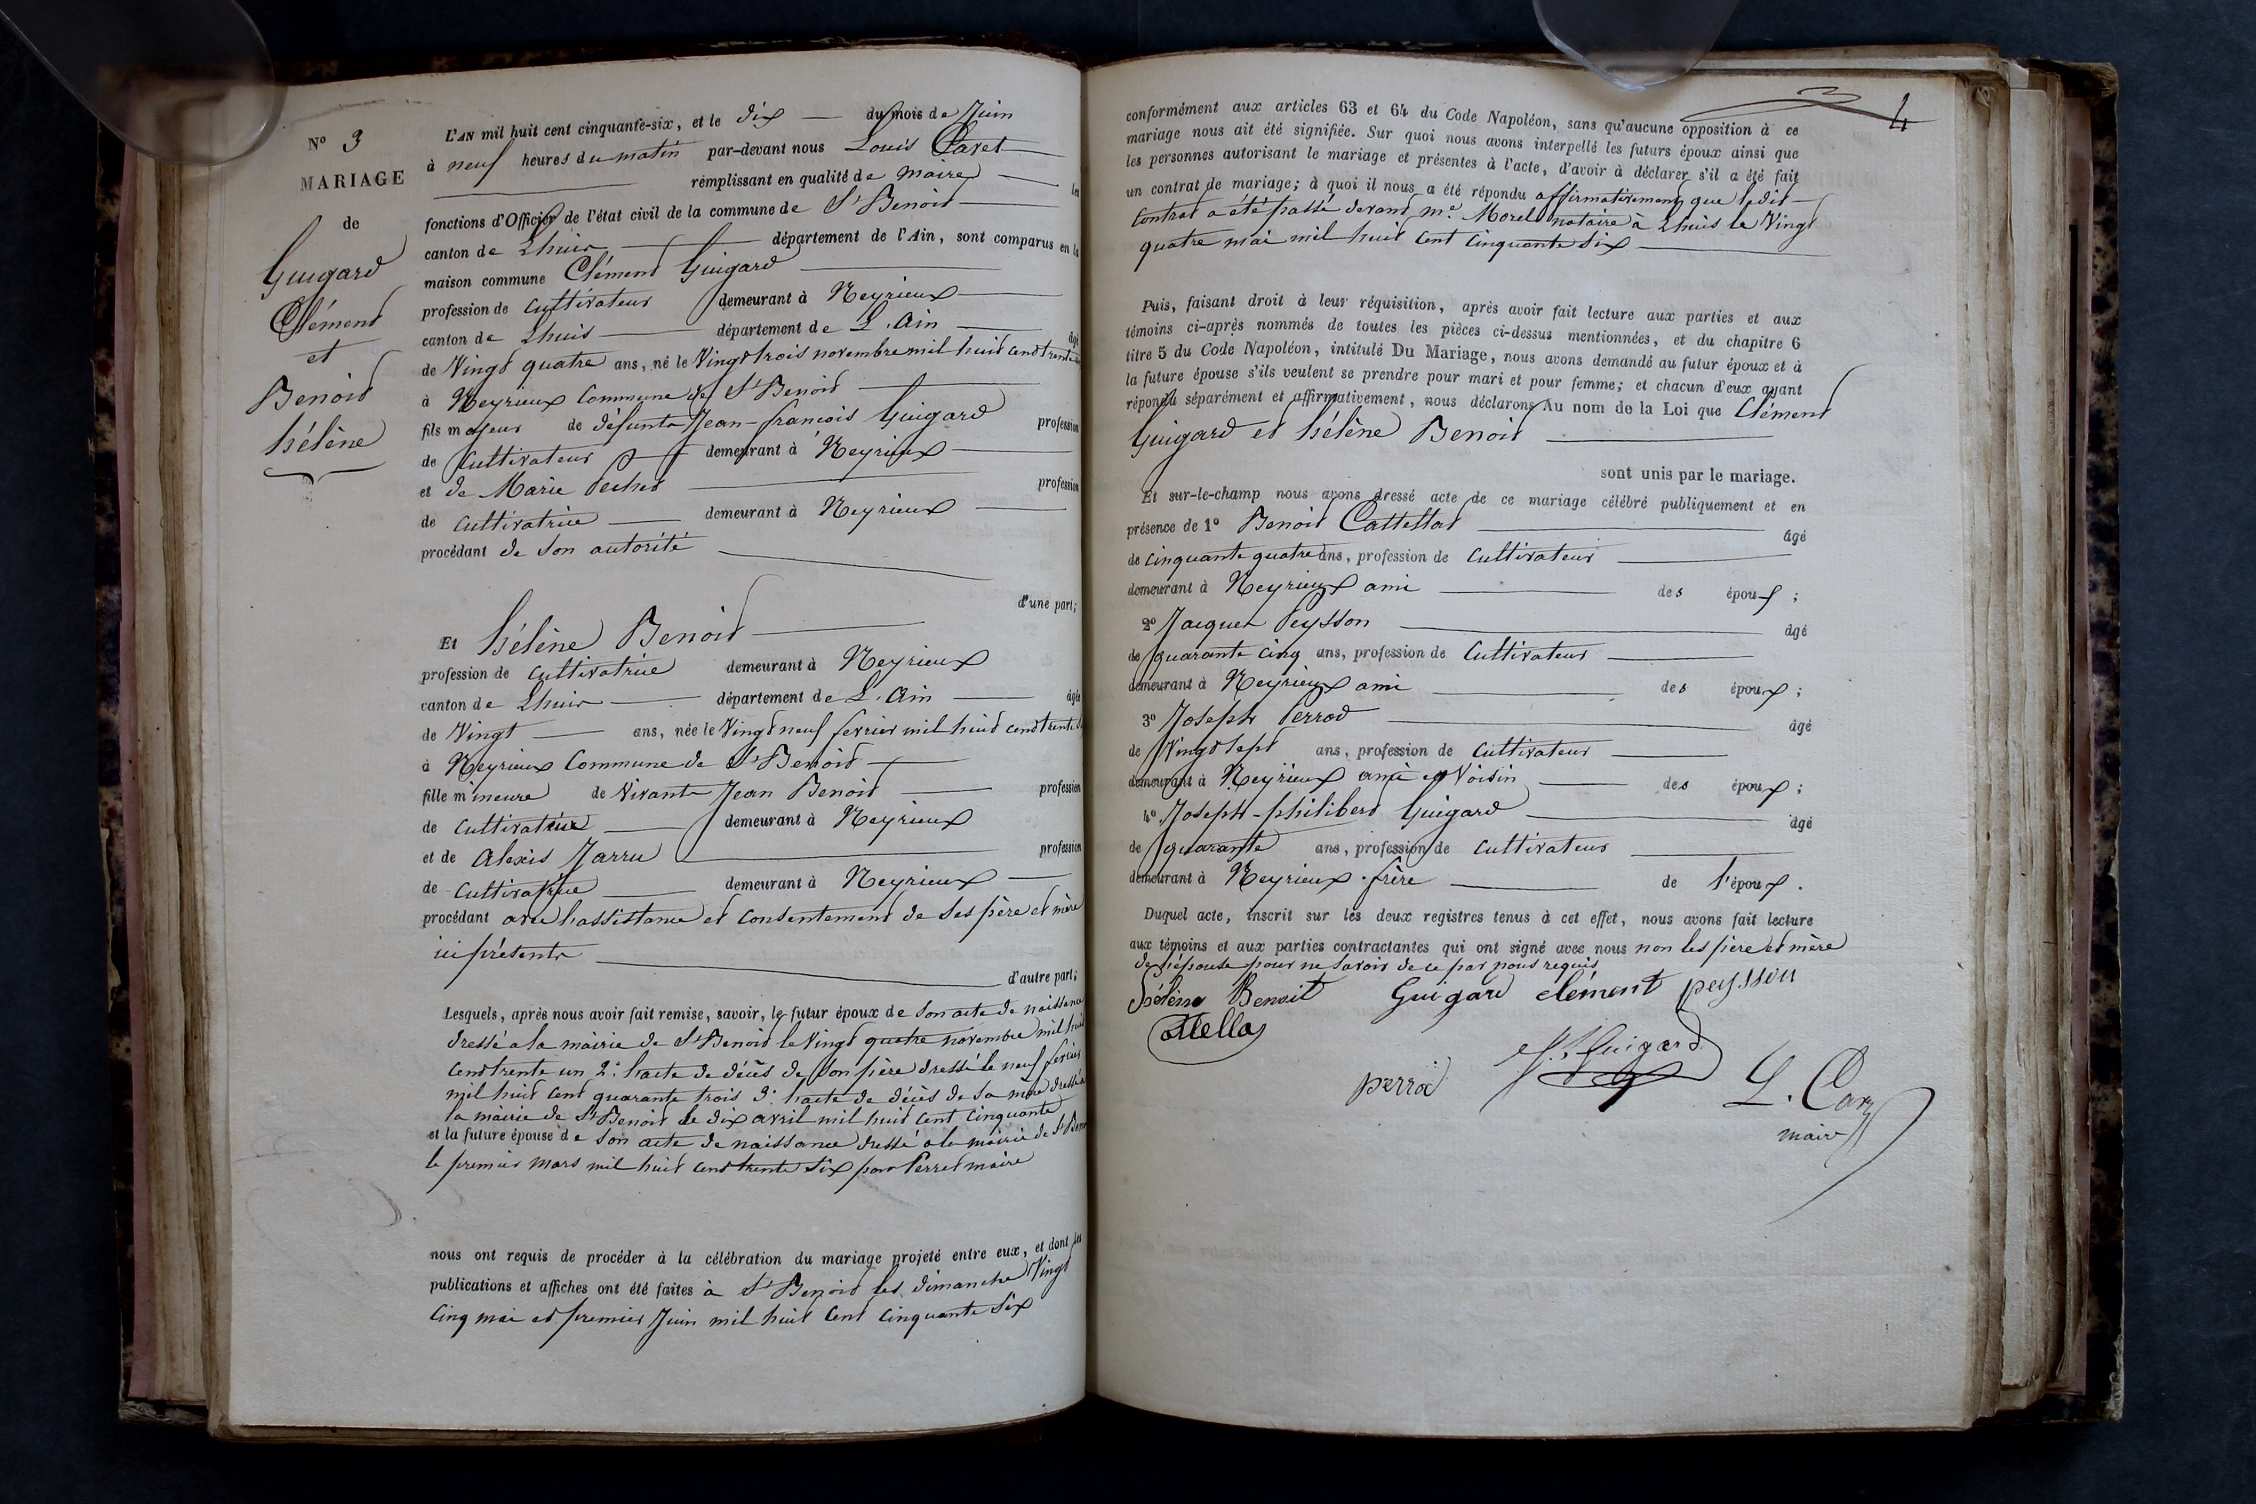 N° 3
MARIAGE
de
Guigard
Clément
et
Benoit
hélène
L'AN mil huit cent cinquante-six, et le dix du mois de Juin
à neuf heures du matin par-devant nous Louis Caret
remplissant en qualité de maire les
fonctions d'Officier de l'état civil de la commune de St Benoit
canton de Lhuis département de l'Ain, sont comparus en la
maison commune Clément Guigard
profession de cultivateur demeurant à Neyrieux
canton de Lhuis département de L'Ain âgé
de Vingt quatre ans, né le Vingt trois novembre mil huit cent trente
à Neyrieux Commune de St Benoit
fils majeur de défunts Jean-francois Guigard profession
de Cultivateur demeurant à Neyrieux
et de Marie profession
de cultivatrice demeurant à Neyrieux
procédant de son autorité
d'une part;
Et hélène Benoit
profession de cultivatrice demeurant à Neyrieux
canton de Lhuis département de L'Ain âgée
de Vingt ans, née le Vingt neuf fevrier mil huit cent trente
à Neyrieux Commune de St Benoit
fille mineure de Vivants Jean Benoit profession
de cultivateur demeurant à Neyrieux
et de Alexis Jarru profession
de cultivatrice demeurant à Neyrieux
procédant avec l'assistance et consentement de ses père et mère
ici présents
d'autre part;
Lesquels, après nous avoir fait remise, savoir, le futur époux de son acte de naissance
dressé a la mairie de St Benoit le Vingt quatre novembre mil huit
cent trente un 2° l'acte de décès de son père dressé le neuf fevrier
mil huit cent quarante trois 3° l'acte de décès de sa mère dressé a
la mairie de St Benoit le dix avril mil huit cent cinquante
et la future épouse de son acte de naissance dressé a la mairie de St Benoit
le premier mars mil huit cent trente six par Perret maire
nous ont requis de procéder à la célébration du mariage projeté entre eux, et dont les
publications et affiches ont été faites à St Benoit les dimanche Vingt
cinq mai et premier Juin mil huit cent cinquante six
4
conformément aux articles 63 et 64 du Code Napoléon, sans qu'aucune opposition à ce
mariage nous ait été signifiée. Sur quoi nous avons interpellé les futurs époux ainsi que
les personnes autorisant le mariage et présentes à l'acte, d'avoir à déclarer s'il a été fait
un contrat de mariage; à quoi il nous a été répondu affirmativement que ledit
contrat a été passé devant me. Morel notaire à Lhuis le Vingt
quatre mai mil huit cent cinquante six
Puis, faisant droit à leur réquisition, après avoir fait lecture aux parties et aux
témoins ci-après nommés de toutes les pièces ci-dessus mentionnées, et du chapitre 6
titre 5 du Code Napoléon, intitulé Du Mariage, nous avons demandé au futur époux et à
la future épouse s'ils veulent se prendre pour mari et pour femme; et chacun d'eux ayant
répondu séparément et affirmativement, nous déclarons Au nom de la Loi que Clément
Guigard et hélène Benoit
sont unis par le mariage.
Et sur-le-champ nous avons dressé acte de ce mariage célébré publiquement et en
présence de 1° Benoit Cattellat âgé
de cinquante quatre ans, profession de cultivateur
demeurant à Neyrieux ami des époux;
2° Jacques Peysson âgé
de quarante cinq ans, profession de cultivateur
demeurant à Neyrieux ami des époux;
3° Joseph Perrod âgé
de Vingt sept ans, profession de cultivateur
demeurant à Neyrieux ami et Voisin des époux;
4° Joseph-philibert Guigard âgé
de quarante ans, profession de cultivateur
demeurant à Neyrieux frère de l'époux.
Duquel acte, inscrit sur les deux registres tenus à cet effet, nous avons fait lecture
aux témoins et aux parties contractantes qui ont signé avec nous non les père et mère
de l'épouse pour ne savoir de ce par nous requis
hélène Benoit Guigard clément peysson
J. P. Guigard
perrod
L. Car
maire